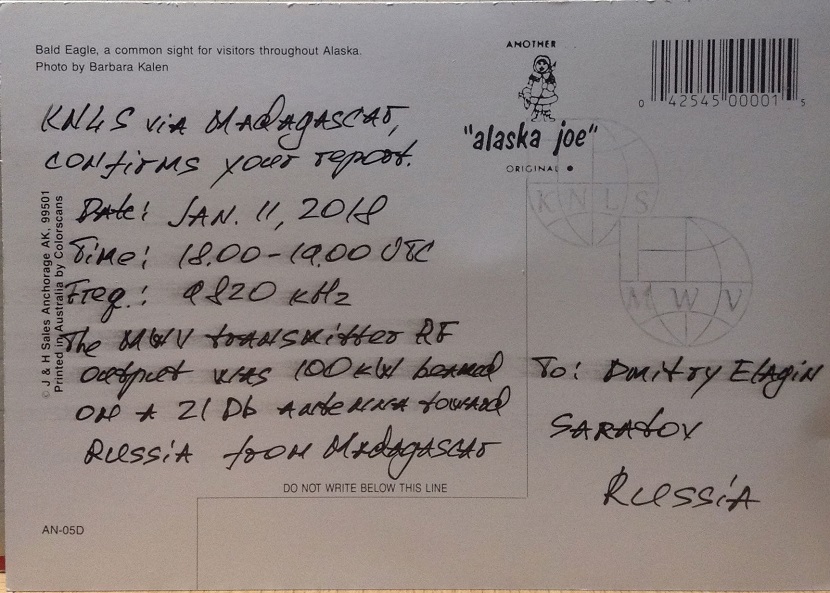 Bald Eagle, a common sight for visitors throughout Alaska.
Photo by Barbara Kalen
ANOTHER
"alaska joe"
ORIGINAL
0 42545 00001 5
KNLS via Madagascar,
confirms your report.
Date: JAN. 11, 2018
Time: 18.00-19.00 UTC
Freq.: 9820 kHz
The MWV transmitter RF
output was 100 kW beamed
on a 21 Db antenna toward
Russia from Madagascar
To: Dmitry Elagin
Saratov
Russia
KNLS
MWV
© J & H Sales Anchorage AK, 99501
Printed in Australia by Colorscans
DO NOT WRITE BELOW THIS LINE
AN-05D